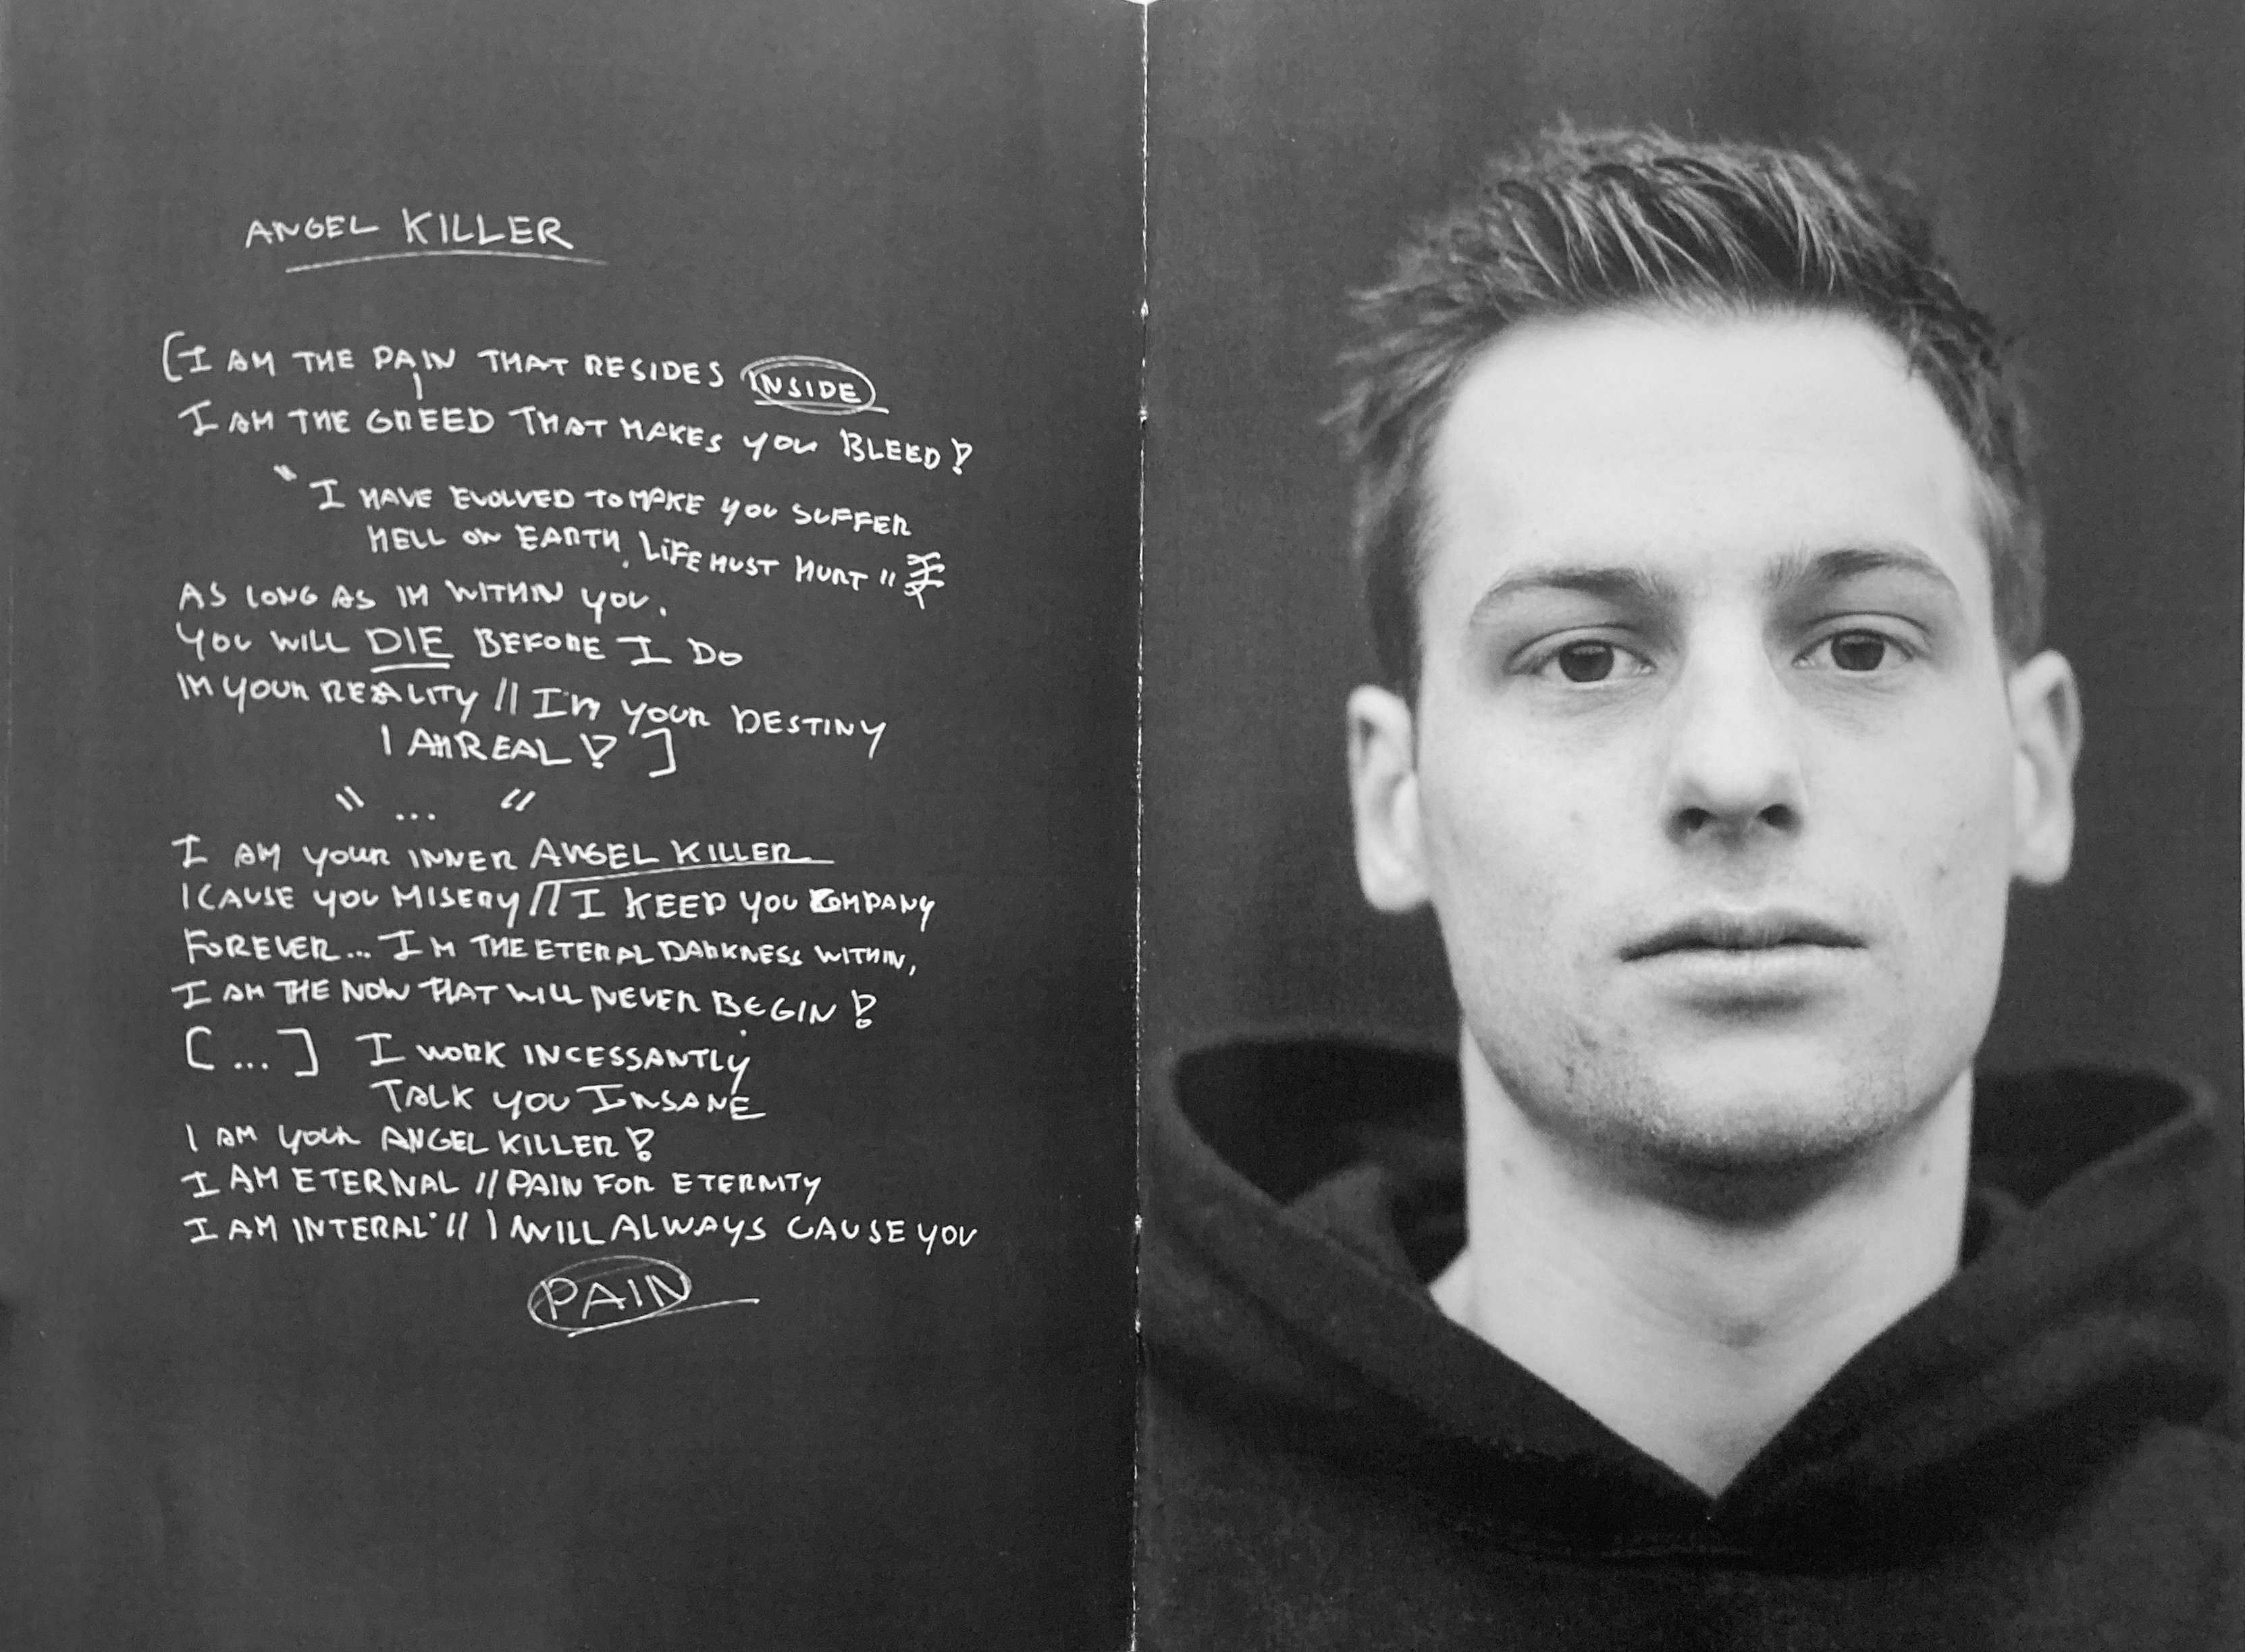 ANGEL KILLER
[I AM THE PAIN THAT RESIDES INSIDE
I AM THE GREED THAT MAKES YOU BLEED!
" I HAVE EVOLVED TO MAKE YOU SUFFER
HELL ON EARTH, LIFE MUST HURT "
AS LONG AS IM WITHIN YOU.
YOU WILL DIE BEFORE I DO
IM YOUR REALITY // I'M YOUR DESTINY
I AM REAL! ]
" ... "
I AM YOUR INNER ANGEL KILLER
I CAUSE YOU MISERY // I KEEP YOU COMPANY
FOREVER... IM THE ETERAL DARKNESS WITHIN,
I AM THE NOW THAT WILL NEVER BEGIN!
[...] I WORK INCESSANTLY
TALK YOU INSANE
I AM YOUR ANGEL KILLER!
I AM ETERNAL // PAIN FOR ETERNITY
I AM INTERAL // I WILL ALWAYS CAUSE YOU
PAIN